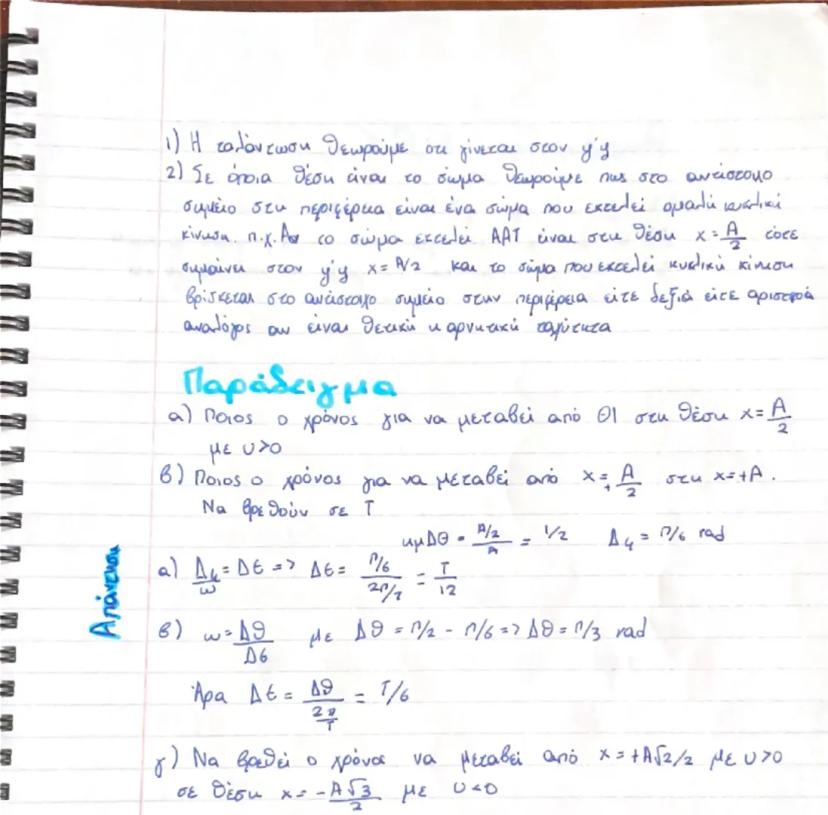 1) Η ταλάντωση θεωρούμε ότι γίνεται στον y'y
2) Σε όποια θέση είναι το σώμα θεωρούμε πως στο αντίστοιχο
σημείο στη περιφέρεια είναι ένα σώμα που εκτελεί ομαλή κυκλική
κίνηση. π.χ. Αν το σώμα εκτελεί ΑΑΤ είναι στη θέση x = A/2 τότε
σημαίνει στον y'y x = A/2 και το σώμα που εκτελεί κυκλική κίνηση
βρίσκεται στο αντίστοιχο σημείο στην περιφέρεια είτε δεξιά είτε αριστερά
αναλόγως αν είναι θετική η αρνητική ταχύτητα
Παράδειγμα
α) Ποιος ο χρόνος για να μεταβεί από ΘΙ στη θέση x = A/2
με υ>0
β) Ποιος ο χρόνος για να μεταβεί από x = +A/2 στη x = +A.
Να βρεθούν σε T
ημΔθ = A/2 / A = 1/2 Δφ = π/6 rad
Απάντηση
α) Δφ/ω = Δt => Δt = π/6 / 2π/T = T/12
β) ω = Δθ/Δt με Δθ = π/2 - π/6 => Δθ = π/3 rad
Άρα Δt = Δθ / 2π/T = T/6
γ) Να βρεθεί ο χρόνος να μεταβεί από x = +A√2/2 με υ>0
σε θέση x = -A√3/2 με υ<0